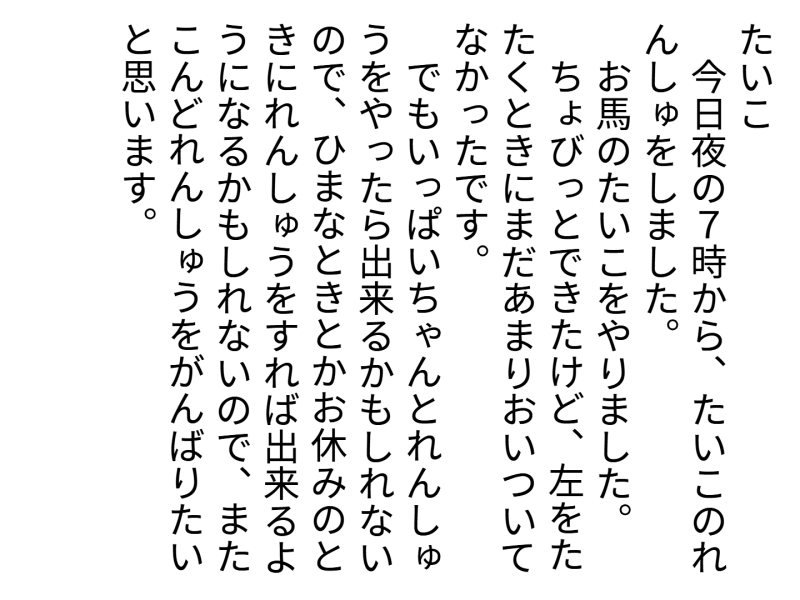 たいこ
　今日夜の７時から、たいこのれ
んしゅをしました。
　お馬のたいこをやりました。
　ちょびっとできたけど、左をた
たくときにまだあまりおいついて
なかったです。
　でもいっぱいちゃんとれんしゅ
うをやったら出来るかもしれない
ので、ひまなときとかお休みのと
きにれんしゅうをすれば出来るよ
うになるかもしれないので、また
こんどれんしゅうをがんばりたい
と思います。